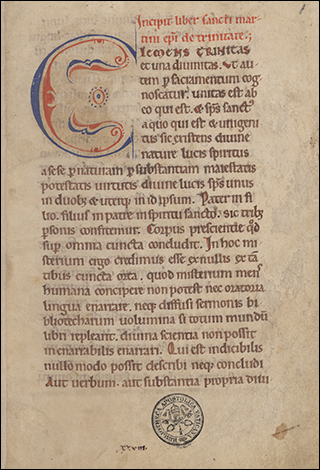 Incipit liber sancti mar
tini epi de trinitate.
CLEMENS TRINITAS
et una divinitas. Ut au
tem p sacramentum cog
noscatur. unitas est ab
eo qui est. & sps sanct
a quo qui est & unigeni
tus sic existens divine
nature lucis spiritus
a se se p naturam p substantiam maiestatis
potestatis virtutis divine lucis sps unus
in duob; & uterq; in id ipsum. Pater in fi
lio. filius in patre in spiritu sancto. sic trib;
psonis confitemur. Corpus prescientie qd
sup omnia cuncta concludit. In hoc mi
sterium ergo credimus esse ex nullis ex
tibus cuncta crea. quod misterium mens
humana concipere non potest nec oratoria
lingua enarrare. neq; diffusi sermonis bi
bliothecarum volumina si totum mundū
libri repleant. divina scientia non possit
inenarrabilis enarrari. Qui est indicibilis
nullo modo possit describi neq; concludi
Aut verbum. aut substantia propria divi
BIBLIOTHECA APOSTOLICA VATICANA